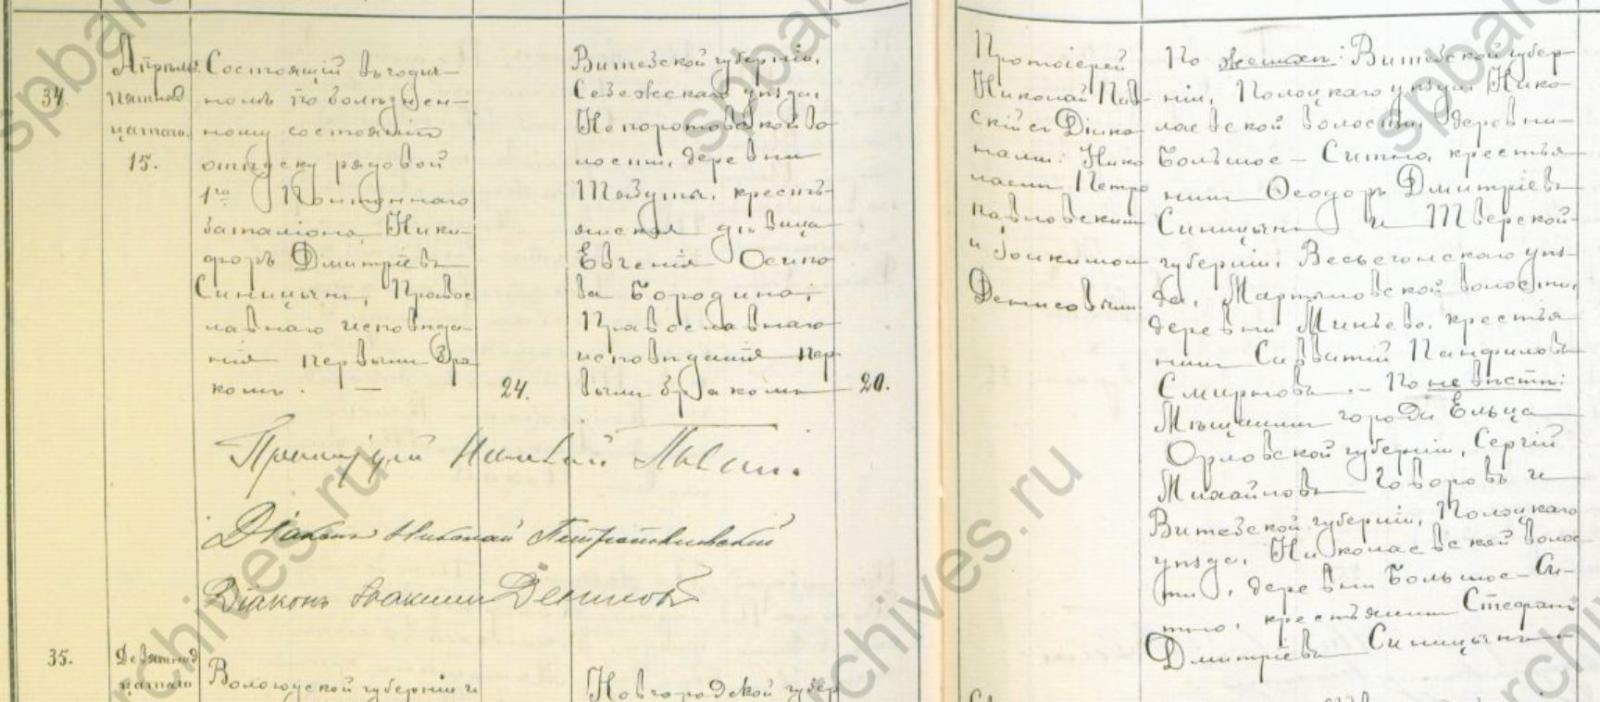 34.
Апрѣля
пятнад
цатаго.
15.
Состоящій въ годич-
номъ по болѣзнен-
ному состоянію
отпуску рядовой
1го Понтоннаго
баталіона Ники-
форъ Дмитріевъ
Синицынъ, Правос
лавнаго исповѣда-
нія первымъ бра
комъ. —
24.
Витебской губерніи,
Себежскаго уѣзда,
Непоротовской во
лости, деревни
крестъ-
янская дѣвица
Евгенія Осипо
ва Бородина,
Православнаго
исповѣданія пер
вымъ бракомъ
20.
Протоіерей
Николай
скій съ Діако
нами: Нико
лаемъ Петро
павловскимъ
и Іоакимомъ
Денисовымъ
По женихѣ: Витебской губер-
ніи, Полоцкаго уѣзда Нико
лаевской волости, деревни
Большое-Ситно, крестья
нинъ Ѳеодоръ Дмитріевъ
Синицынъ и Тверской
губерніи, Весьегонскаго уѣз-
да, Мартыновской волости,
деревни Миньево, крестья
нинъ Савватій Панфиловъ
Смирновъ. - По невѣстѣ:
Мѣщанинъ города Ельца
Орловской губерніи, Сергій
Михайловъ Говоровъ и
Витебской губерніи, Полоцкаго
уѣзда, Николаевской волос
ти, деревни Большое-Си-
тно, крестьянинъ Стефанъ
Дмитріевъ Синицынъ
Протоіерей Николай
Діаконъ Николай Петропавловскій
Діаконъ Іоакимъ Денисовъ
35.
Девятнад
цатаго
Вологодской губерніи и
Новгородской губер
spbarchives.ru